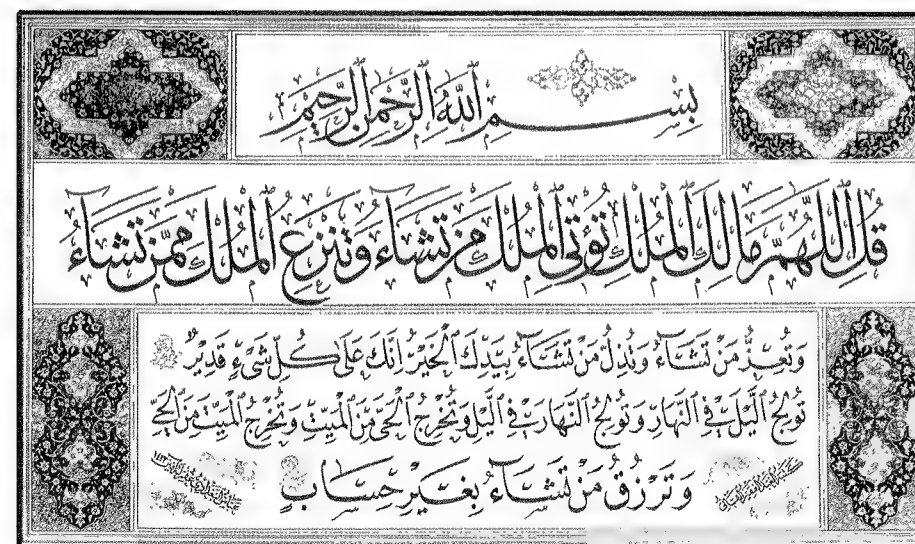 بِسْمِ ٱللَّهِ ٱلرَّحْمَٰنِ ٱلرَّحِيمِ
قُلِ ٱللَّهُمَّ مَالِكَ ٱلْمُلْكِ تُؤْتِي ٱلْمُلْكَ مَنْ تَشَآءُ وَتَنْزِعُ ٱلْمُلْكَ مِمَّنْ تَشَآءُ
وَتُعِزُّ مَنْ تَشَآءُ وَتُذِلُّ مَنْ تَشَآءُ بِيَدِكَ ٱلْخَيْرُ اِنَّكَ عَلَىٰ كُلِّ شَىْءٍ قَدِيرٌ
تُولِجُ ٱلَّيْلَ فِى ٱلنَّهَارِ وَتُولِجُ ٱلنَّهَارَ فِى ٱلَّيْلِ وَتُخْرِجُ ٱلْحَىَّ مِنَ ٱلْمَيِّتِ وَتُخْرِجُ ٱلْمَيِّتَ مِنَ ٱلْحَىِّ
وَتَرْزُقُ مَنْ تَشَآءُ بِغَيْرِ حِسَابٍ